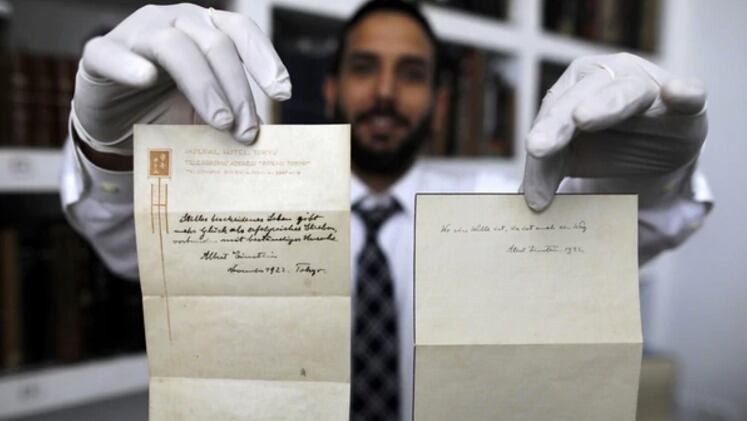 IMPERIAL HOTEL TOKYO
TELEGRAPHIC ADDRESS
Stilles bescheidenes Leben gibt
mehr Glück als erfolgreiches Streben,
verbunden mit beständiger Unruhe.
Albert Einstein
November 1922. Tokyo.
Wo ein Wille ist, da ist auch ein Weg
Albert Einstein. 1922.